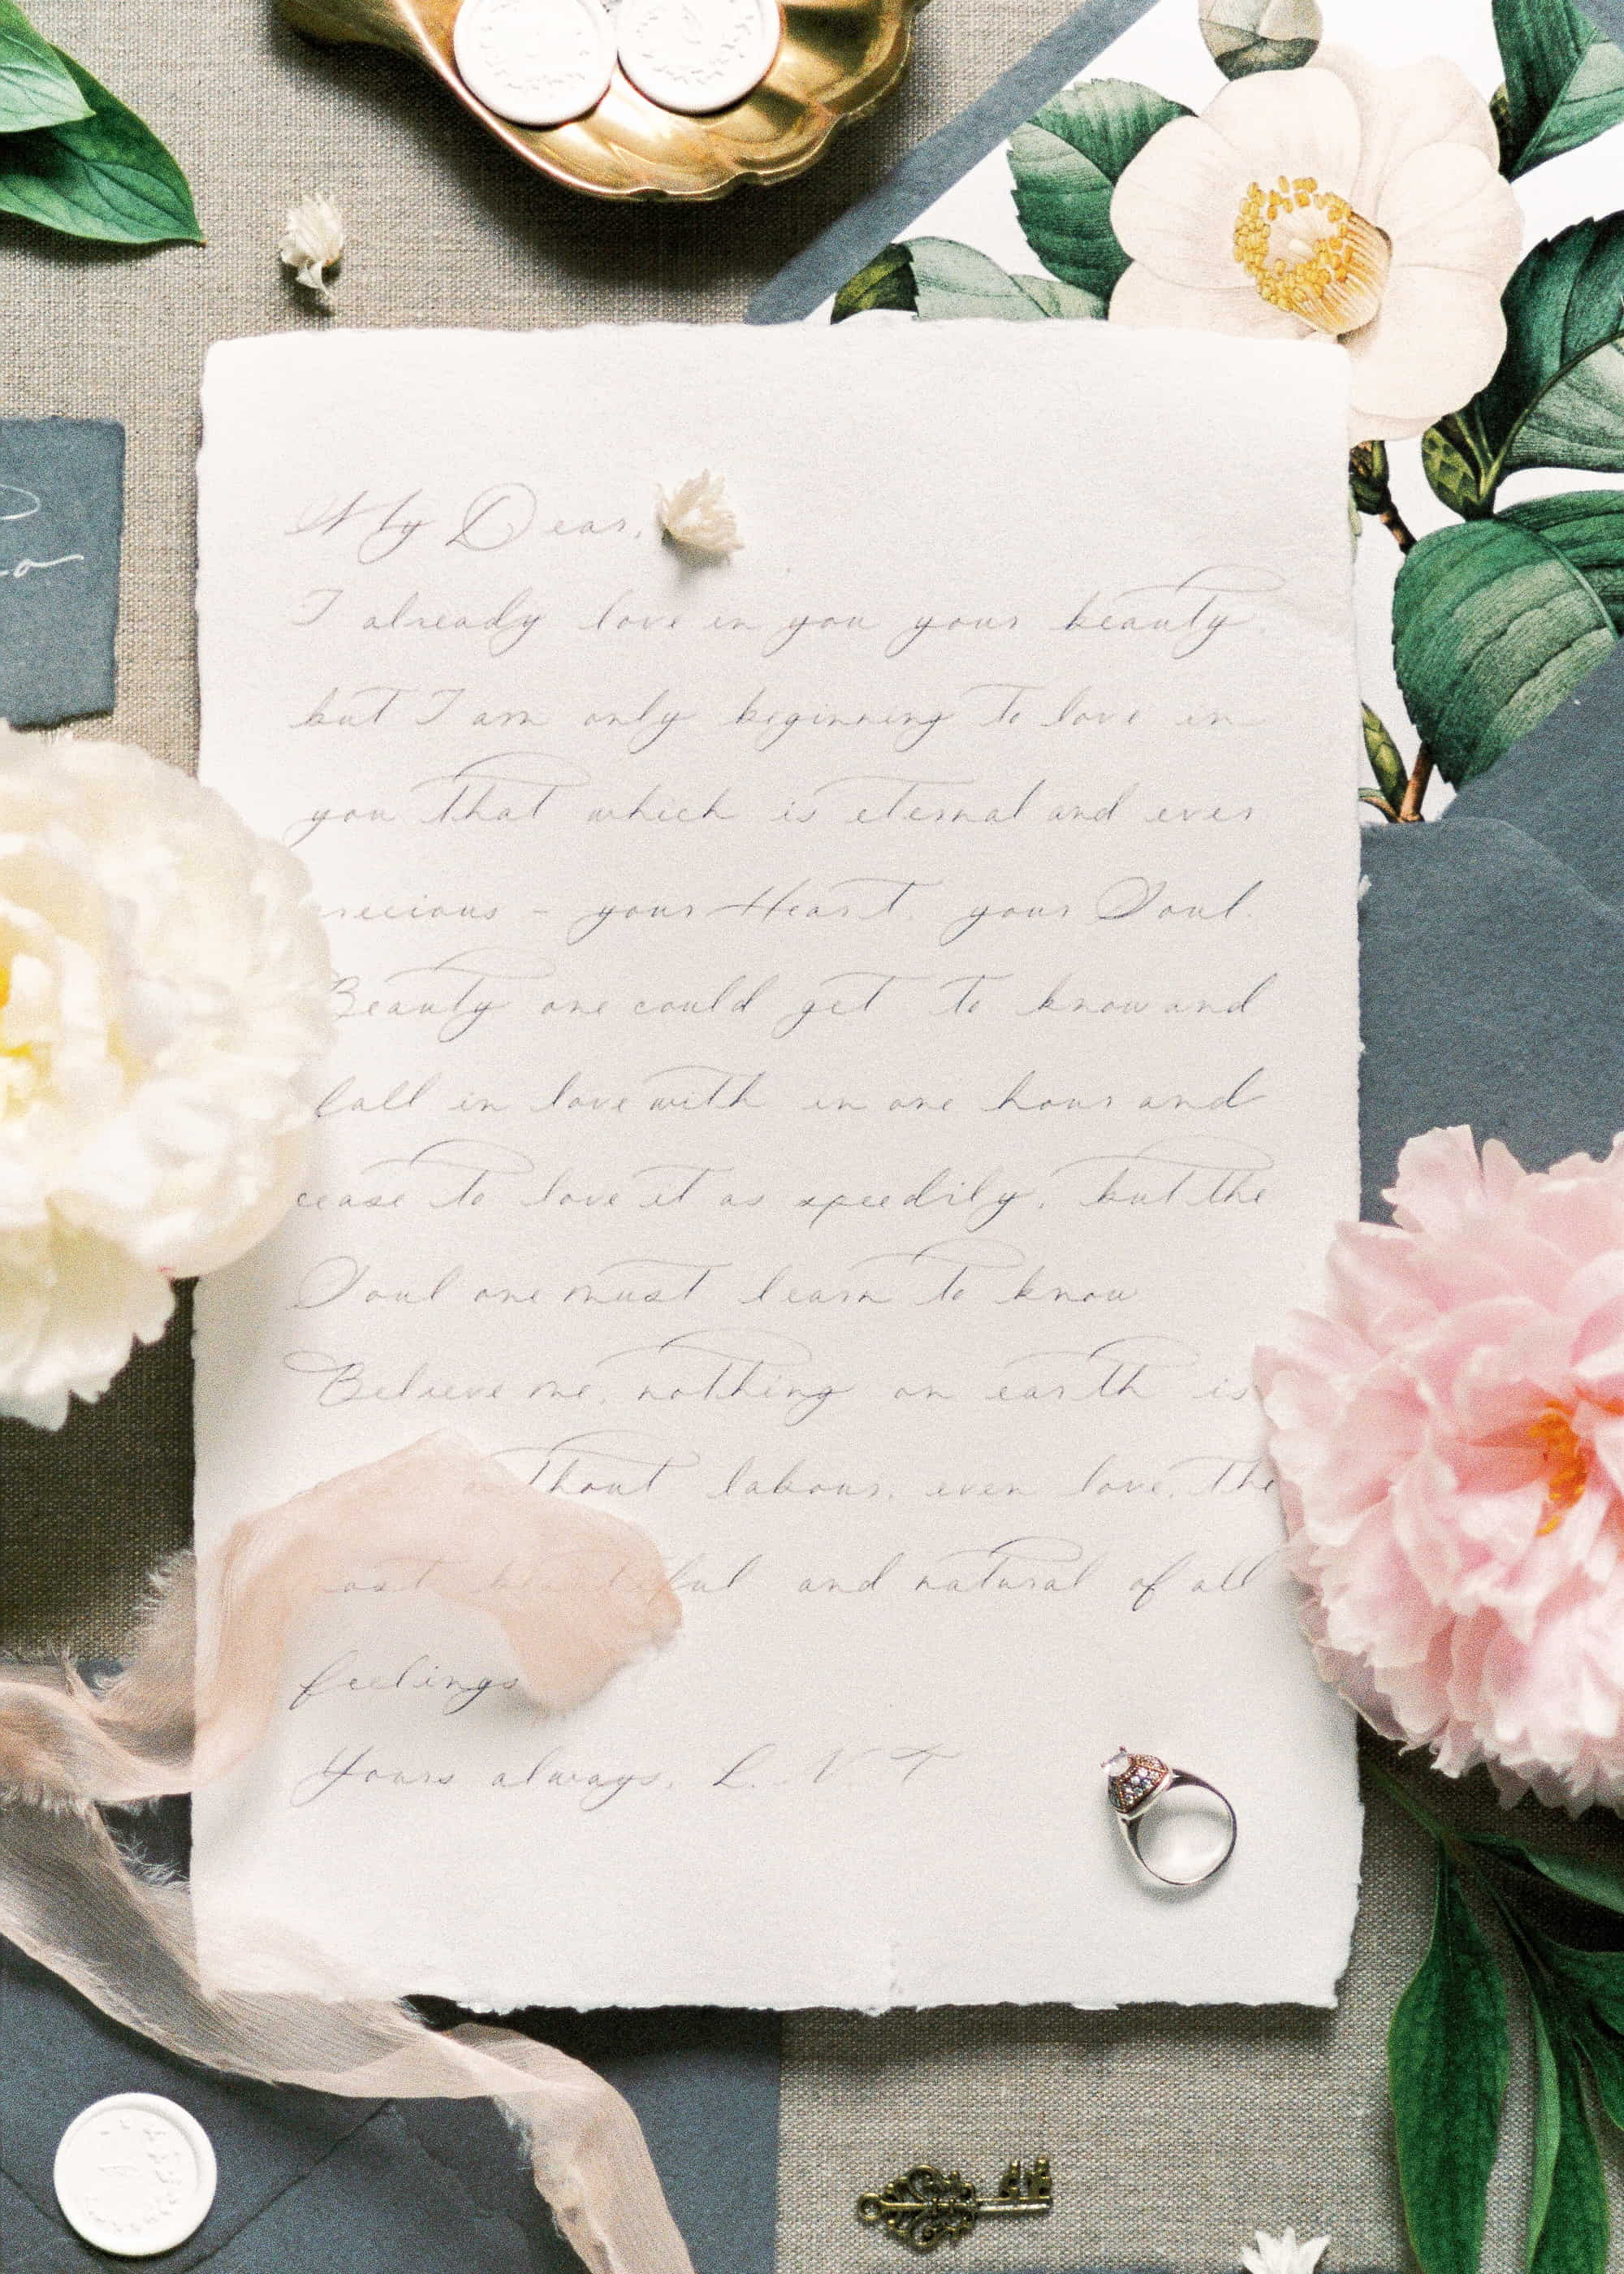 My Dear,
I already love in you your beauty,
but I am only beginning to love in
you that which is eternal and ever
recious - your Heart, your Soul.
Beauty one could get to know and
fall in love with in one hour and
cease to love it as speedily, but the
Soul one must learn to know
Believe me, nothing on earth is
without labour, even love, the
ost beautiful and natural of all
feelings
Yours always, L. N. T